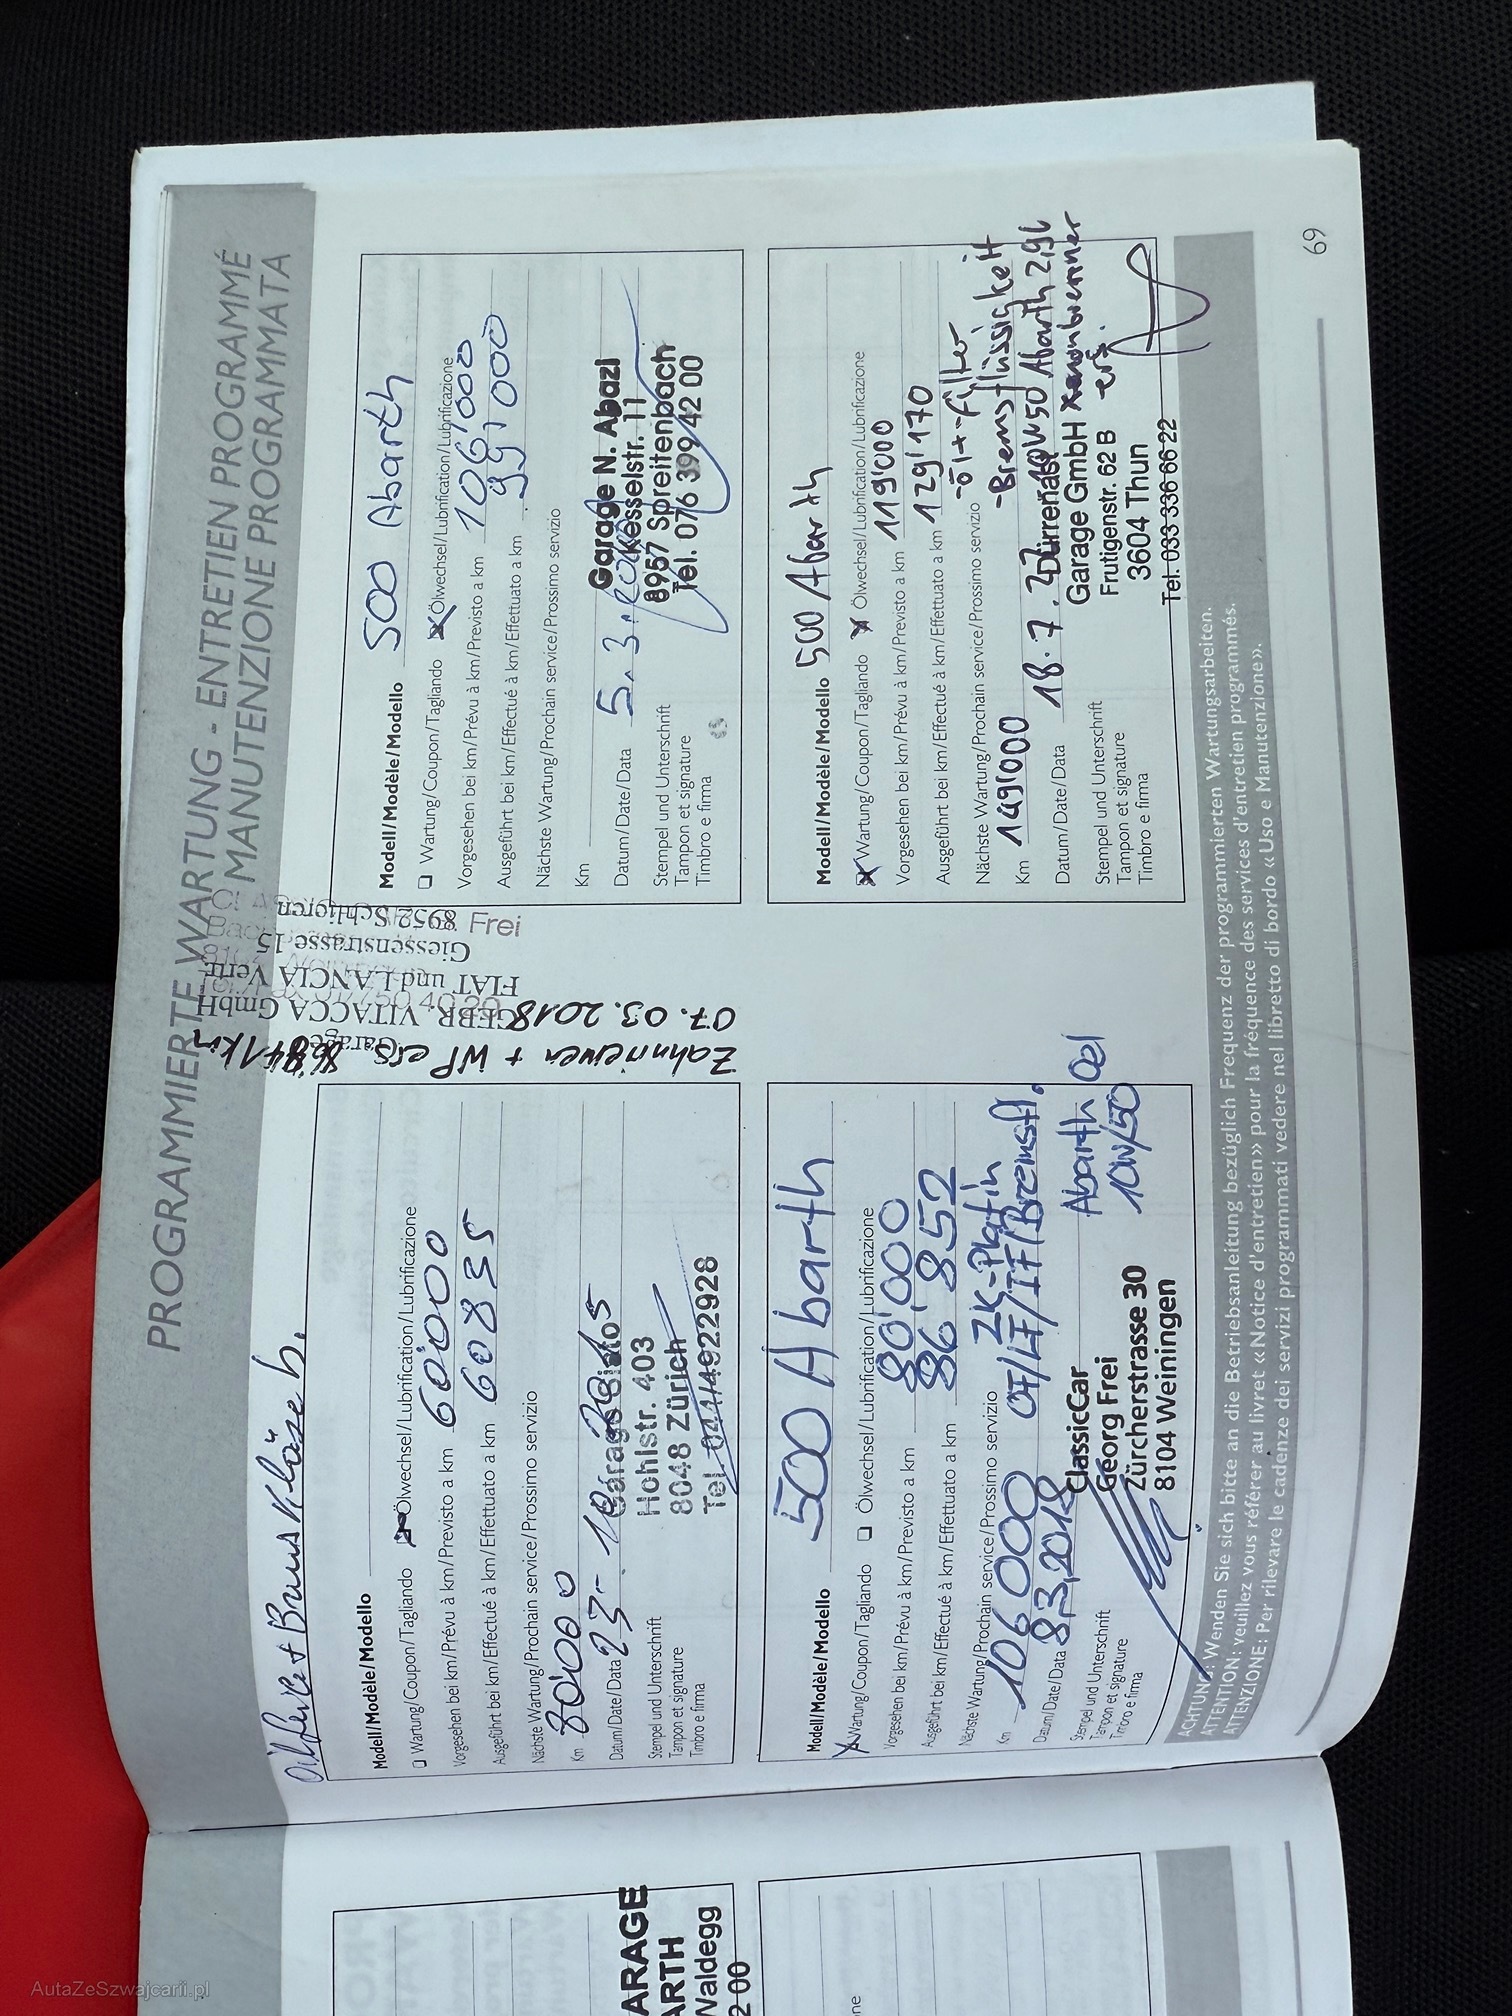 PROGRAMMIERTE WARTUNG - ENTRETIEN PROGRAMMÉ
MANUTENZIONE PROGRAMMATA
Ölfilter + Bremsklötze h.
Modell/Modèle/Modello
Wartung/Coupon/Tagliando Ölwechsel/Lubrification/Lubrificazione
Vorgesehen bei km/Prévu à km/Previsto a km 60'000
Ausgeführt bei km/Effectué à km/Effettuato a km 60835
Nächste Wartung/Prochain service/Prossimo servizio
Km 80'000
Datum/Date/Data 23-10-2015
Stempel und Unterschrift
Tampon et signature
Timbro e firma
Garage
Hohlstr. 403
8048 Zürich
Tel. 044/4922928
Zahnriemen + WP ers
07.03.2018
Garage
GEBR. VITACCA GmbH
FIAT und LANCIA Vertr.
Giessenstrasse 15
8952 Schlieren
Frei
Modell/Modèle/Modello 500 Abarth
Wartung/Coupon/Tagliando Ölwechsel/Lubrification/Lubrificazione
Vorgesehen bei km/Prévu à km/Previsto a km 106'000
Ausgeführt bei km/Effectué à km/Effettuato a km 99'000
Nächste Wartung/Prochain service/Prossimo servizio
Km
Datum/Date/Data 5. 3.
Stempel und Unterschrift
Tampon et signature
Timbro e firma
Garage N. Abazi
Kesselstr. 11
8957 Spreitenbach
Tel. 076 399 42 00
Modell/Modèle/Modello 500 Abarth
Wartung/Coupon/Tagliando Ölwechsel/Lubrification/Lubrificazione
Vorgesehen bei km/Prévu à km/Previsto a km 80'000
Ausgeführt bei km/Effectué à km/Effettuato a km 86'852
Nächste Wartung/Prochain service/Prossimo servizio ZK-Platin
Km 106000 OF/LF/IF/Bremsfl.
Datum/Date/Data 8.3.2018
Abarth Oel
10W/50
Stempel und Unterschrift
Tampon et signature
Timbro e firma
ClassicCar
Georg Frei
Zürcherstrasse 30
8104 Weiningen
Modell/Modèle/Modello 500 Abarth
Wartung/Coupon/Tagliando Ölwechsel/Lubrification/Lubrificazione
Vorgesehen bei km/Prévu à km/Previsto a km 119'000
Ausgeführt bei km/Effectué à km/Effettuato a km 129'170
Nächste Wartung/Prochain service/Prossimo servizio -Öl+-Filter
Km 149'000 -Bremsflüssigkeit
Datum/Date/Data 18.7. 10W50 Abarth 2,9l
Stempel und Unterschrift
Tampon et signature
Timbro e firma
Dürrenast
Garage GmbH Xenonbrenner
Frutigenstr. 62 B ers.
3604 Thun
Tel. 033 336 66 22
ACHTUNG: Wenden Sie sich bitte an die Betriebsanleitung bezüglich Frequenz der programmierten Wartungsarbeiten.
ATTENTION: veuillez vous référer au livret «Notice d'entretien» pour la fréquence des services d'entretien programmés.
ATTENZIONE: Per rilevare le cadenze dei servizi programmati vedere nel libretto di bordo «Uso e Manutenzione».
69
ARAGE
ARTH
Waldegg
2 00
AutaZeSzwajcarii.pl